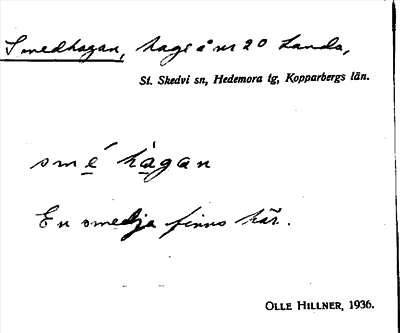 Smedhagan, hage å nr 20 Landa,
St. Skedvi sn, Hedemora tg, Kopparbergs län.
smé hàgan
En smedja finns här.
OLLE HILLNER, 1936.